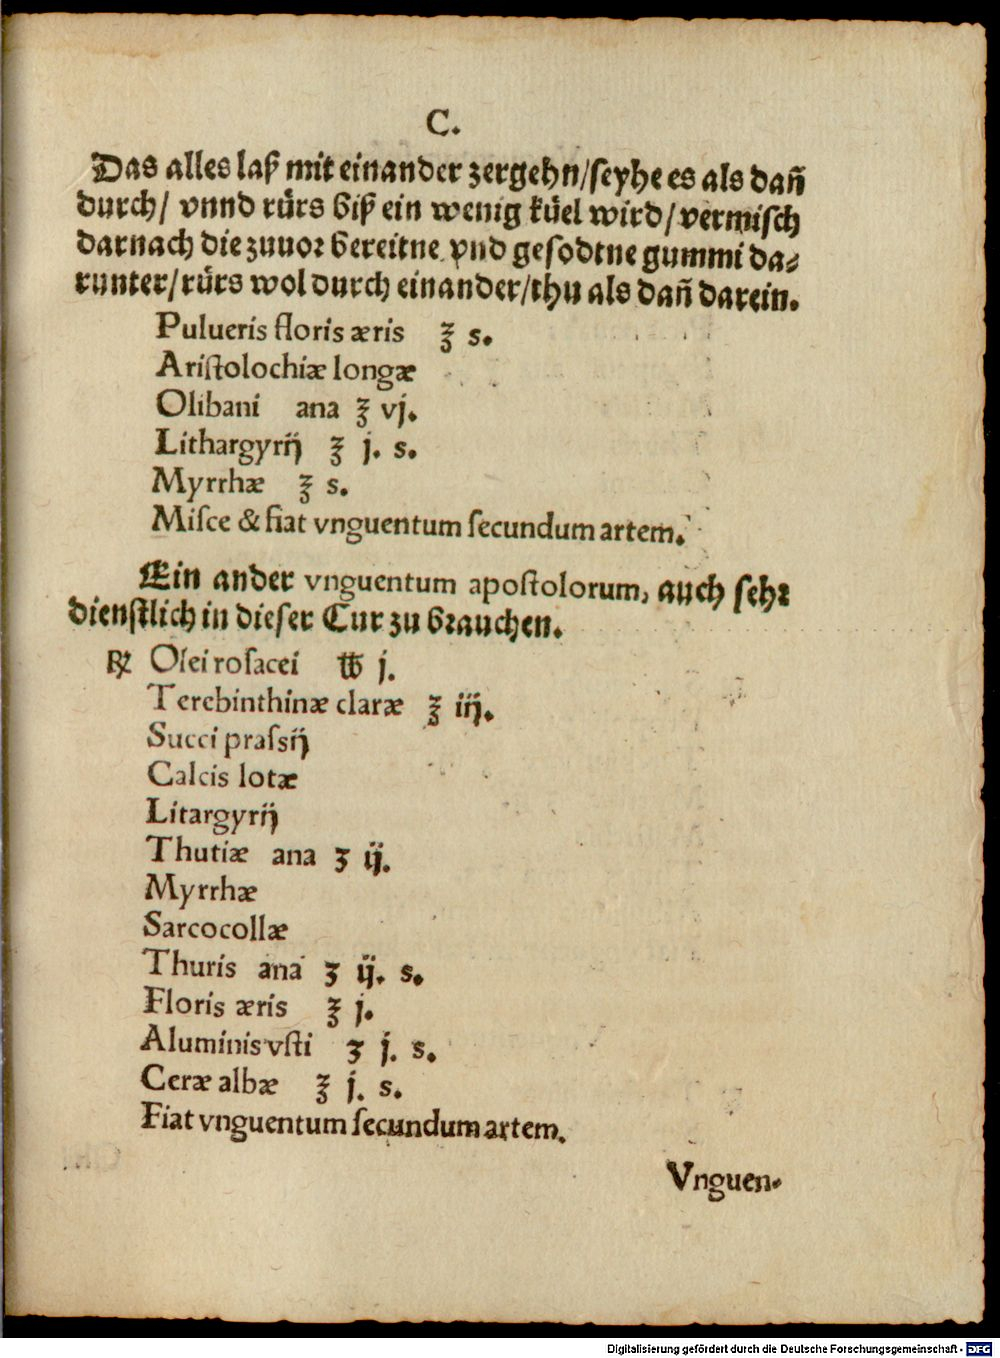 C.
Das alles laß mit einander zergehn/seyhe es als dañ
durch/ vnnd rürs biß ein wenig küel wird/vermisch
darnach die zuuor bereitne vnd gesodtne gummi da⸗
runter/rürs wol durch einander/thu als dañ darein.
Pulueris floris æris ℥ s.
Aristolochiæ longæ
Olibani ana ℥ vj.
Lithargyrij ℥ j. s.
Myrrhæ ℥ s.
Misce & fiat vnguentum secundum artem.
Ein ander vnguentum apostolorum, auch sehr
dienstlich in dieser Cur zu brauchen.
℞ Olei rosacei ℔ j.
Terebinthinæ claræ ℥ iij.
Succi prassij
Calcis lotæ
Litargyrij
Thutiæ ana ʒ ij.
Myrrhæ
Sarcocollæ
Thuris ana ʒ ij. s.
Floris æris ℥ j.
Aluminis vsti ʒ j. s.
Ceræ albæ ℥ j. s.
Fiat vnguentum secundum artem.
Vnguen⸗
Digitalisierung gefördert durch die Deutsche Forschungsgemeinschaft - DFG